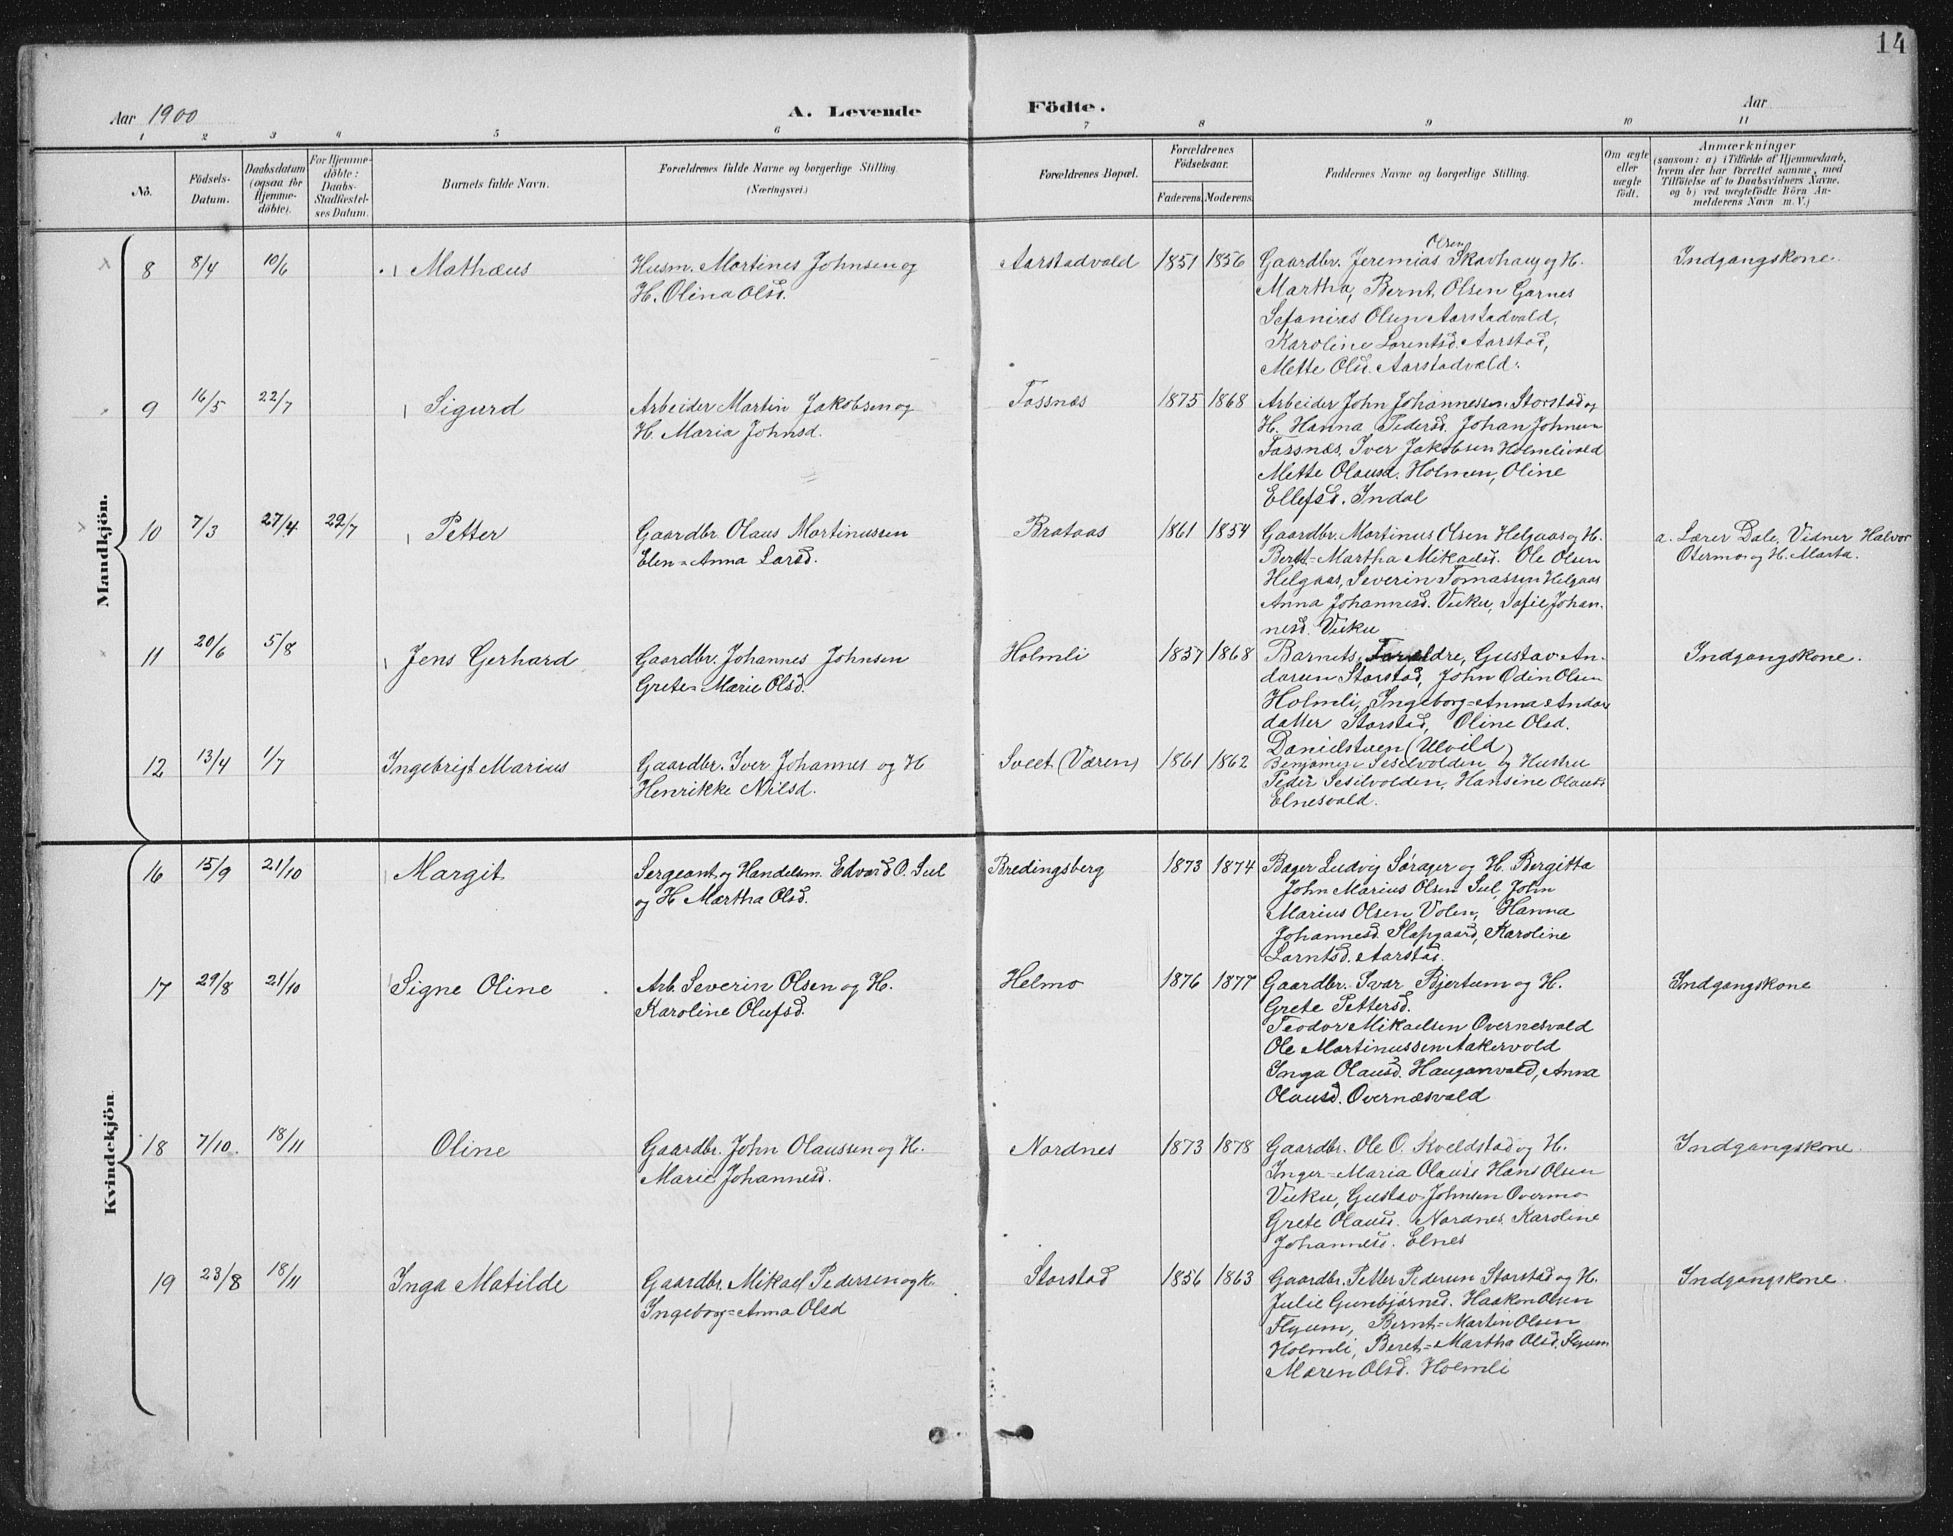 14
Aar 1900
A. Levende Födte.
Aar
1 2 3 4 5 6 7 8 9 10 11
No.
Födsels-Datum.
Daabsdatum (ogsaa for Hjemmedöbte).
For Hjemmedöbte: Daabs-Stadfestelses Datum.
Barnets fulde Navn.
Forældrenes fulde Navne og borgerlige Stilling. (Næringsvei.)
Forældrenes Bopæl.
Forældrenes Födselsaar.
Faderens. Moderens.
Faddernes Navne og borgerlige Stilling.
Om ægte eller uægte födt.
Anmærkninger
(saasom: a) i Tilfælde af Hjemmedaab, hvem der har forrettet samme, med Tilföielse af to Daabsvidners Navne, og b) ved uægtefödte Börn Anmelderens Navn m. V.)
Mandkjön.
8 8/4 10/6 Mathæus
Husm. Martines Johnsen og
H. Olina Olsd.
Aarstadvald 1851 1856
Olsen
Gaardbr. Jeremias Skavhaug og H.
Martha, Bernt Olsen Garnes
Sefanias Olsen Aarstadvald,
Karoline Lorentsd. Aarstad,
Mette Olsd. Aarstadvald.
Indgangskone.
9 16/5 22/7 Sigurd
Arbeider Martin Jakobsen og
H. Maria Johnsd.
Fossnæs 1875 1868
Arbeider John Johannessen Storstad og
H. Hanna Pedersd. Johan Johnsen
Fossnæs, Iver Jakobsen Holmlivald
Mette Olausd. Holmen, Oline
Ellefsd. Indal
10 7/3 27/4 22/7 Petter
Gaardbr. Olaus Martinussen
Elen=Anna Larsd.
Brataas 1861 1854
Gaardbr. Martinus Olsen Helgaas og H.
Beret=Martha Mikaelsd. Ole Olsen
Helgaas, Severin Tomassen Helgaas
Anna Johannesd. Vuku, Sofie Johan-
nesd. Vuku
a. Lærer Dale, Vidner Halvor
Otermo og H. Marta.
11 20/6 5/8 Jens Gerhard
Gaardbr. Johannes Johnsen
Grete=Marie Olsd.
Holmli 1857 1868
Barnets Forældre, Gustav An-
dersen Storstad, John Odin Olsen
Holmli, Ingeborg=Anna Anders
datter Storstad, Oline Olsd.
Danielstuen (Ulvild)
Indgangskone.
12 13/4 1/7 Ingebrigt Marius
Gaardbr. Iver Johannes og H
Henrikke Nilsd.
Sveet (Væren) 1861 1862
Benjamin Sesilvolden og Hustru
Peder Sesilvolden, Hansine Olausd.
Elnesvald.
Kvindekjön.
16 15/9 21/10 Margit
Sergeant og Handelsm. Edvard O. Sul
og H Martha Olsd.
Bredingsberg 1873 1874
Bager Ludvig Sørager og H. Bergitta
John Marius Olsen Sul, John
Marius Olsen Volen, Hanna
Johannesd. Slapgaard, Karoline
Lorntsd. Aarstad.
17 29/8 21/10 Signe Oline
Arb. Severin Olsen og H.
Karoline Olufsd.
Helmo 1876 1877
Gaardbr. Ivar Bjertum og H.
Grete Pettersd.
Teodor Mikaelsen Overnesvald
Ole Martinussen Aakervold
Inga Olausd. Hauganvald, Anna
Olausd. Overnæsvald
Indgangskone
18 7/10. 18/11 Oline
Gaardbr. John Olaussen og H.
Marie Johannesd.
Nordnes 1873 1878
Gaardbr. Ole O. Kveldstad og H.
Inger=Maria Olausd. Hans Olsen
Vuku, Gustav Johnsen Overmo
Grete Olausd. Nordnes, Karoline
Johannesd. Elnes
Indgangskone.
19 23/8 18/11 Inga Matilde
Gaardbr. Mikael Pedersen og H.
Ingeborg=Anna Olsd
Storstad 1856 1863
Gaardbr. Petter Pedersen Storstad og H.
Julie Gunbjörnsd. Haakon Olsen
Flyum, Bernt=Martin Olsen
Holmli, Beret=Martha Olsd. Flyum
Maren Olsd. Holmli
Indgangskone.